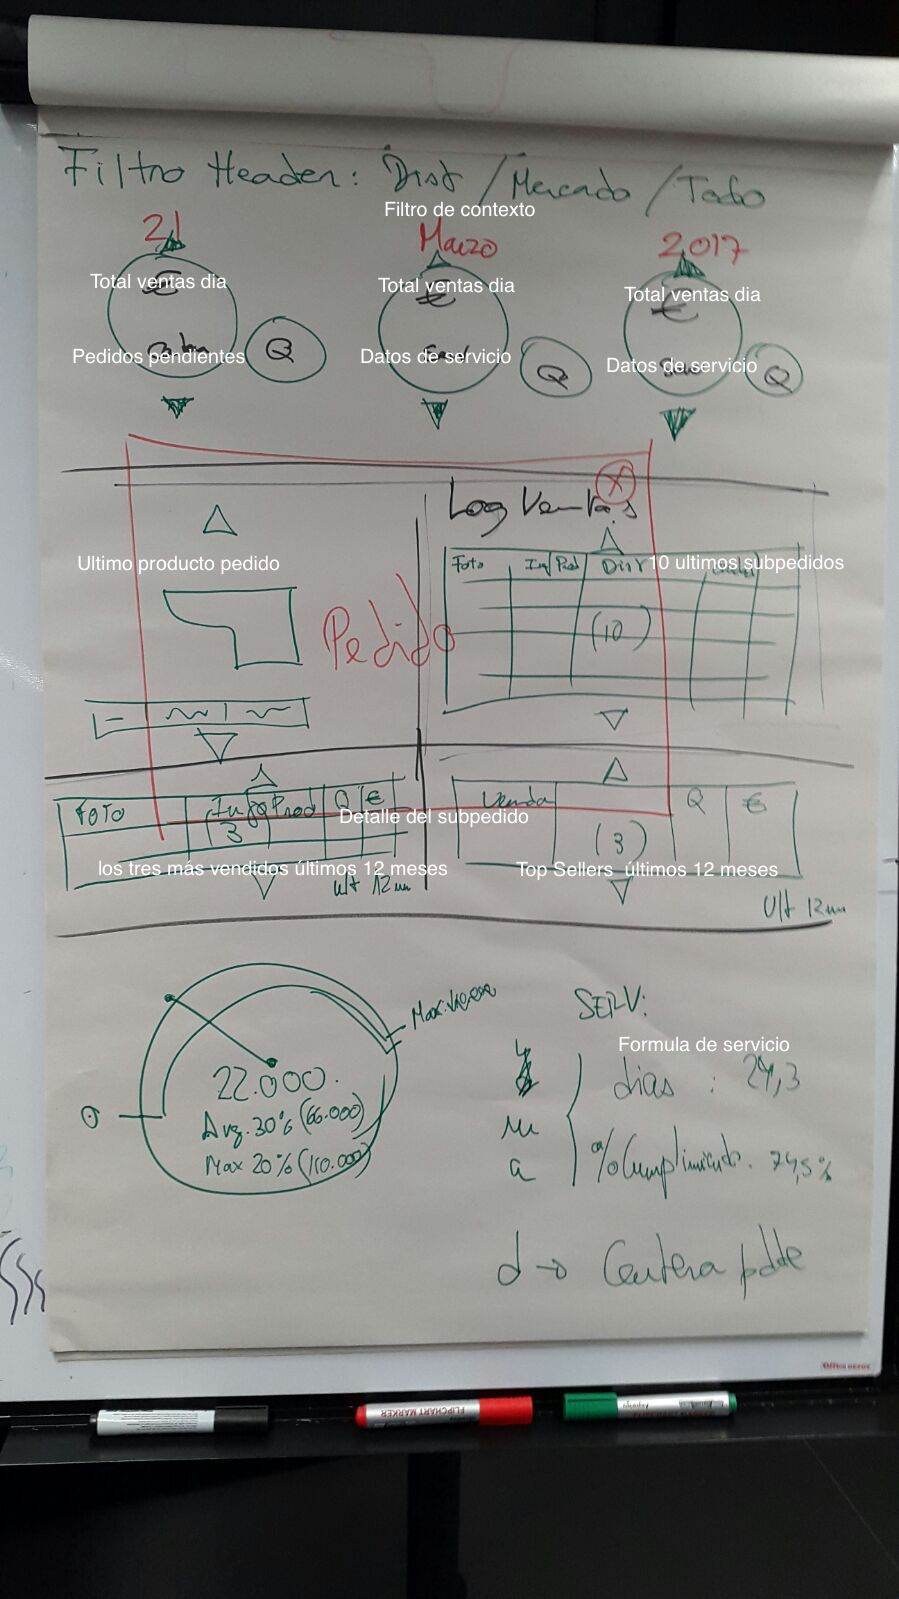 Filtro Header: Dist / Mercado / Todo
Filtro de contexto
21 Marzo 2017
Total ventas dia
€
Pedidos pendientes
Q
Total ventas dia
€
Datos de servicio
Q
Total ventas dia
€
Datos de servicio
Q
Log Ventas
X
Ultimo producto pedido
Foto Inf Prod Distr
10 ultimos subpedidos
(10)
Pedido
FOTO Info Prod Q €
(3)
Detalle del subpedido
los tres más vendidos últimos 12 meses
Ult 12m
Q €
(3)
Top Sellers últimos 12 meses
Ult 12m
0
22.000
Avg. 30% (66.000)
Max 20% (110.000)
SERV:
Formula de servicio
m
a
dias : 24,3
% Cumplimiento. 74,5%
d → Cartera pdte
Office DEPOT
FLIPCHART MARKER